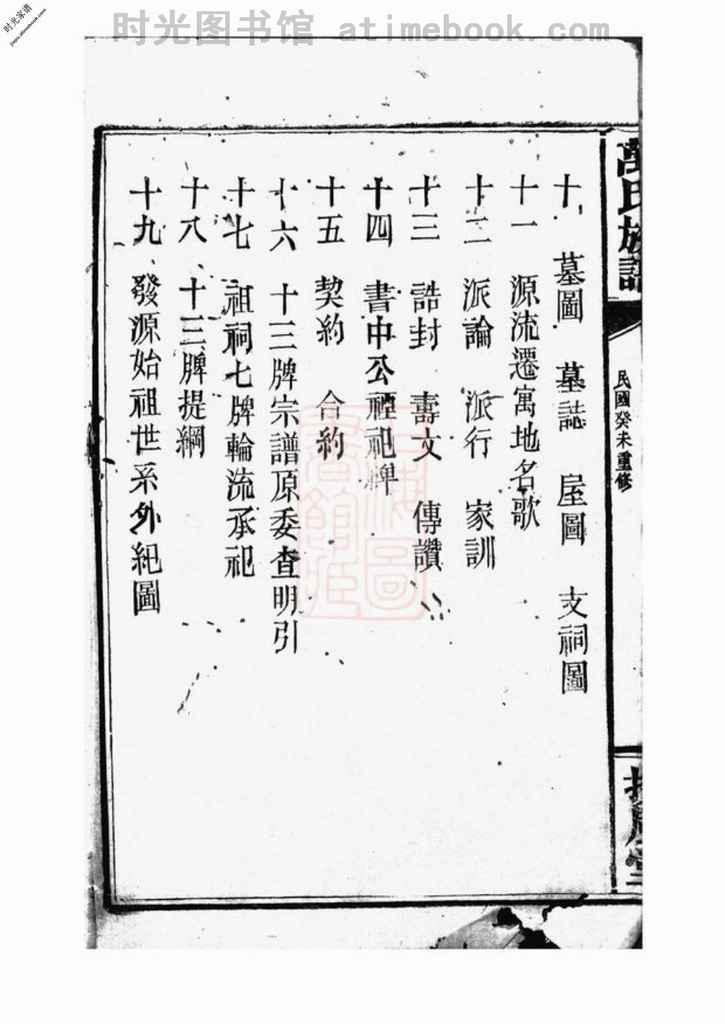 时光图书馆 atimebook.com
时光家谱
萬氏族譜
民國癸未重修
十 墓圖 墓誌 屋圖 支祠圖
十一 源流遷寓地名歌
十二 派論 派行 家訓
十三 誥封 壽文 傳讚
十四 書中公禋祀牌
十五 契約 合約
十六 十三牌宗譜原委查明引
十七 祖祠七牌輪流承祀
十八 十三牌提綱
十九 發源始祖世系外紀圖